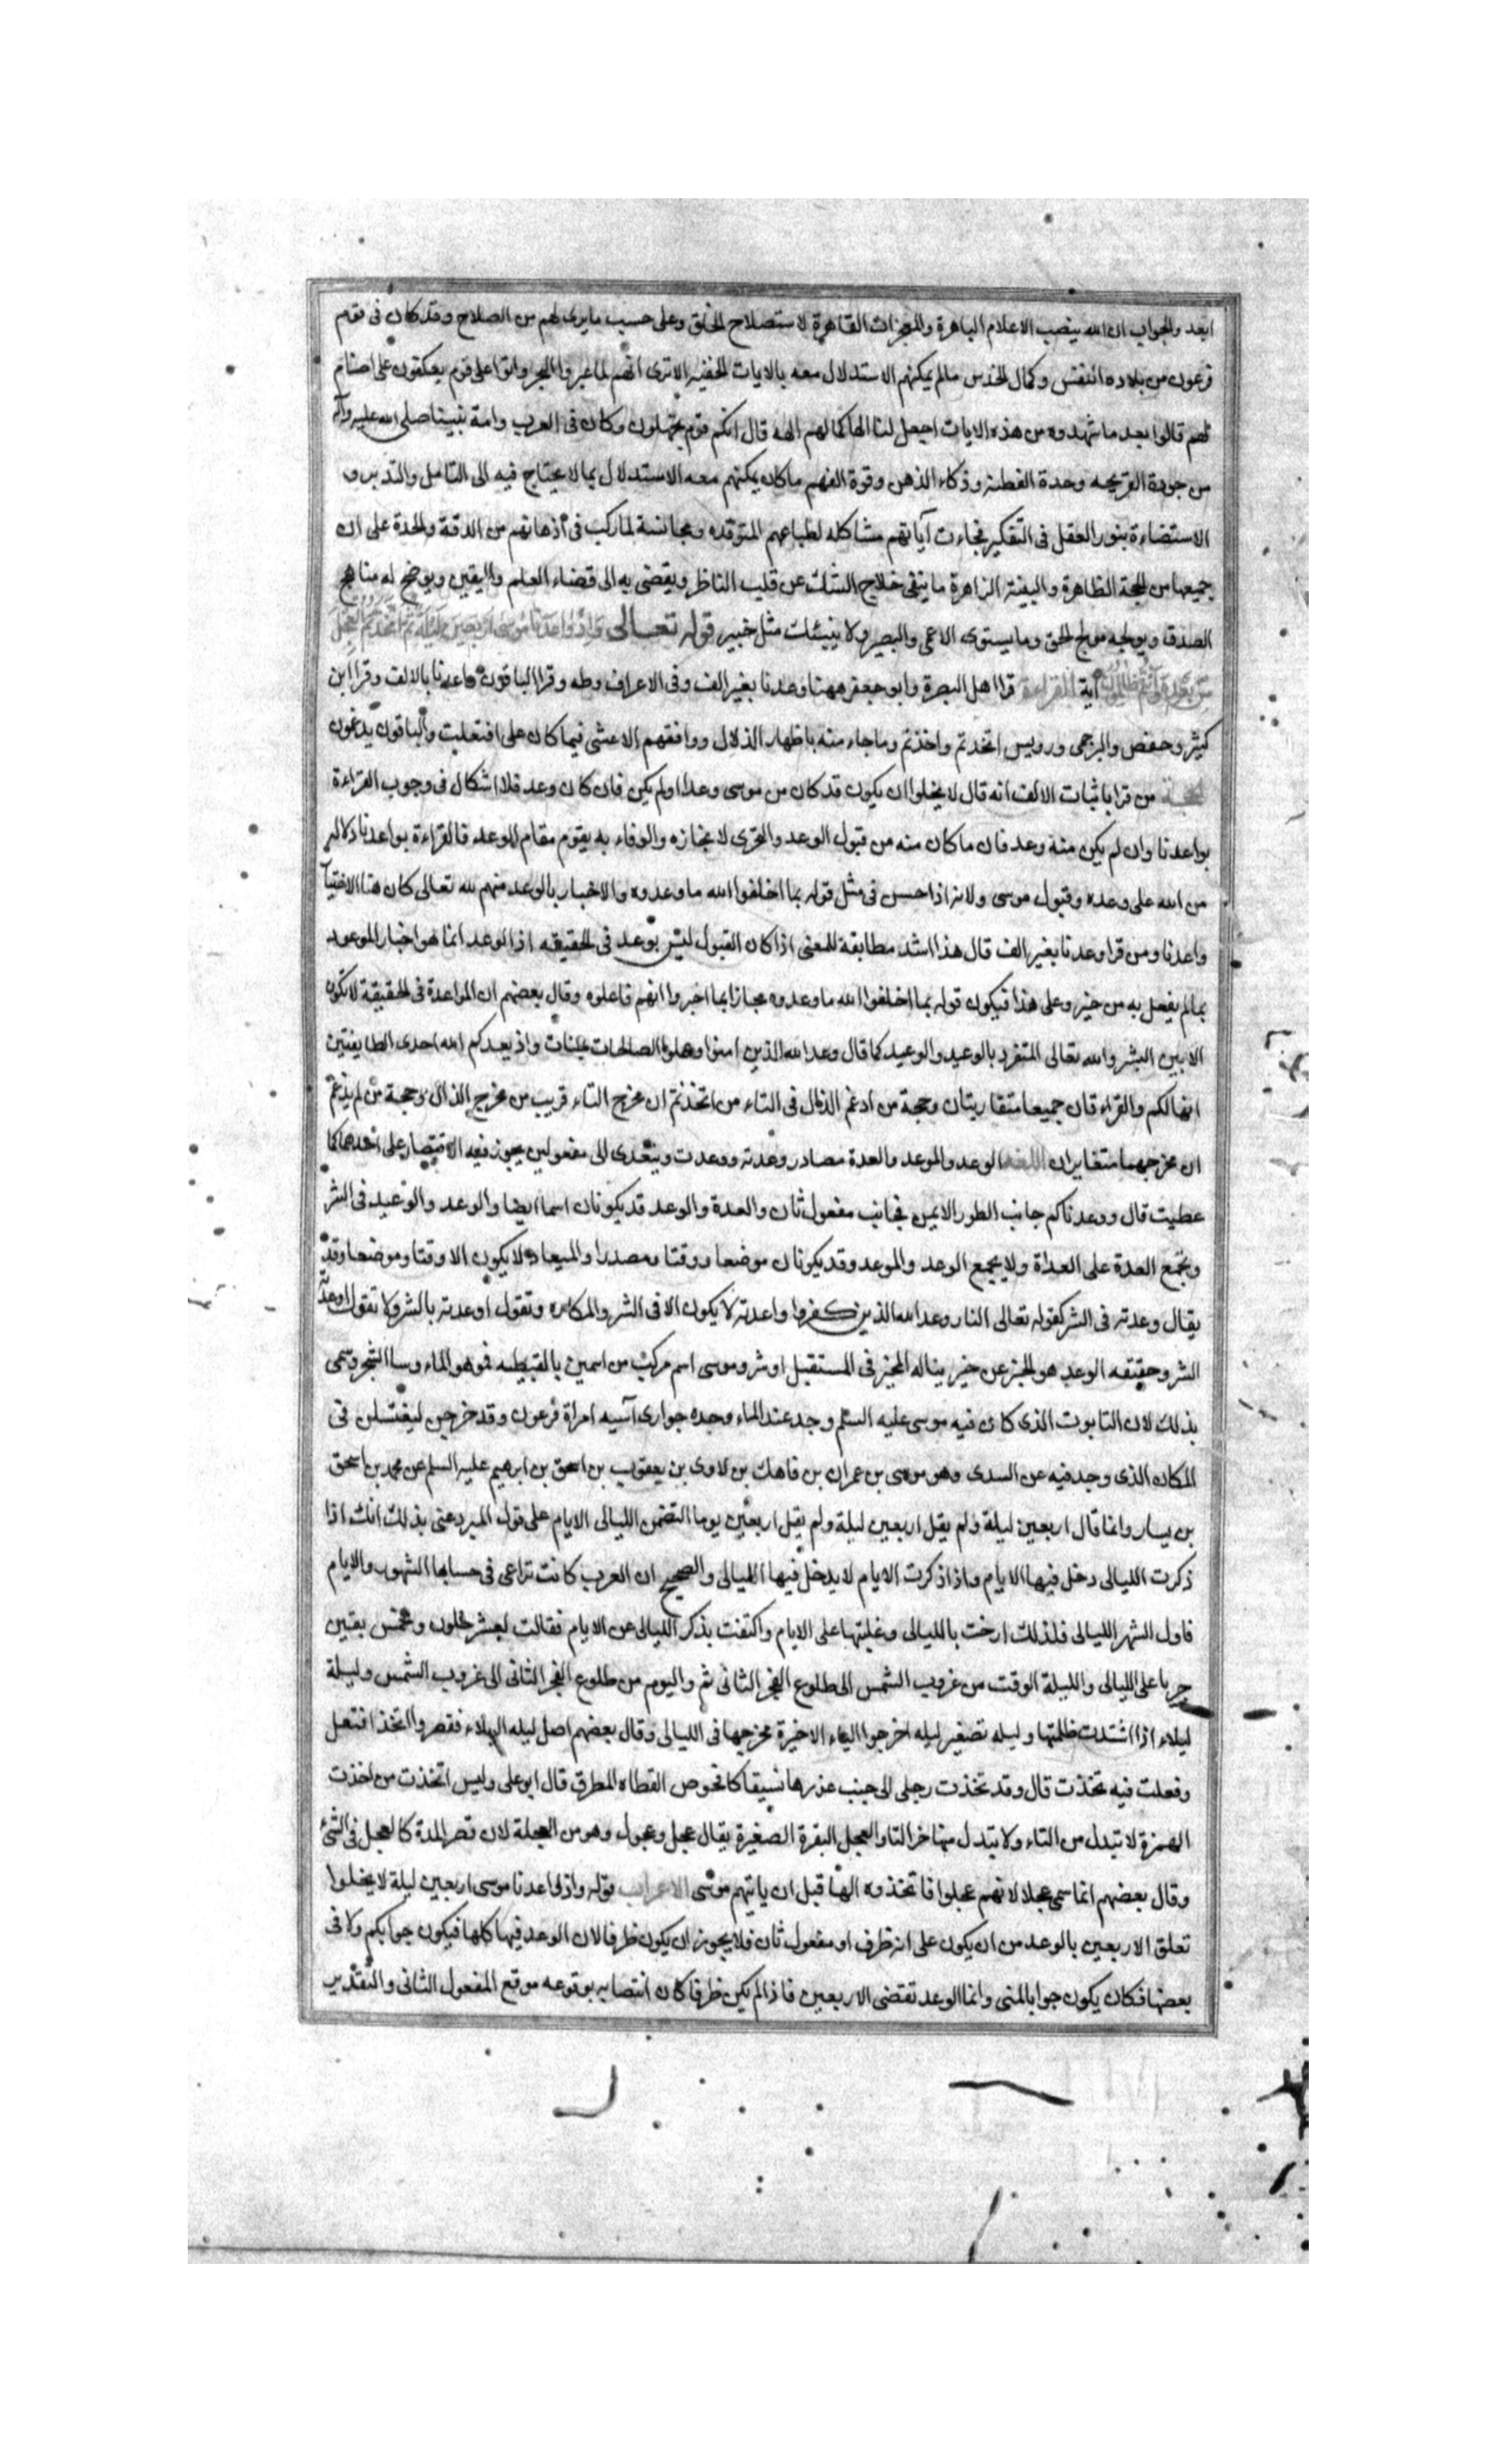 ابعد والجواب ان الله ينصب الاعلام الباهرة والمعجزات القاهرة لاستصلاح الخلق وعلى حسب ما يرى لهم من الصلاح وقد كان فى قوم
فرعون من بلادة النفس وكمال الحدس مالم يمكنهم الاستدلال معه بالايات الخفيه الا ترى انهم لما عبروا البحر واتوا على قوم يعكفون على اصنام
لهم قالوا بعد ما شهدوه من هذه الايات اجعل لنا الها كما لهم الهة قال انكم قوم تجهلون وكان فى العرب وامة نبينا صلى الله عليه وآله
من جودة القريحه وحدة الفطنة وذكاء الذهن وقوة الفهم ما كان يمكنهم معه الاستدلال بما لا يحتاج فيه الى التامل والتدبر و
الاستضاءة بنور العقل فى التفكير فجاءت آياتهم مشاكله لطباعهم المتوقده ومجانسة لما ركب فى أذهانهم من الدقة والحدة على ان
جميعها من الحجة الظاهرة والبينة الزاهرة ما ينفى خلاج الشك عن قلب الناظر ويفضى به الى فضاء العلم واليقين ويوضح له مناهج
الصدق ويولجه موالج الحق وما يستوى الاعمى والبصير ولا ينبئك مثل خبير قوله تعالى واذ واعدنا موسى اربعين ليلة ثم اتخذتم العجل
من بعده وانتم ظالمون آية القراءة قرا اهل البصرة وابو جعفر ههنا وعدنا بغير الف وفى الاعراف وطه وقرا الباقون واعدنا بالالف وقرا ابن
كثير وحفص والبرجمى ورويس اتخذتم واخذتم وما جاء منه باظهار الذال ووافقهم الاعشى فيما كان على افتعلت والباقون يدغمون
الحجة من قرا باثبات الالف انه قال لا يخلوا ان يكون قد كان من موسى وعدا اولم يكن فان كان وعد فلا اشكال فى وجوب القراءة
بواعدنا وان لم يكن منه وعد فان ما كان منه من قبول الوعد والتحرى لانجازه والوفاء به يقوم مقام الموعد فالقراءة بواعدنا دلالة
من الله على وعده وقبول موسى ولانه اذا حسن فى مثل قوله بما اخلفوا الله ما وعدوه والاخبار بالوعد منهم لله تعالى كان هنا الاختيا
واعدنا ومن قرا وعدنا بغير الف قال هذا اشد مطابقة للمعنى اذا كان القبول ليس بوعد فى الحقيقه اذ الوعد انما هو اخبار الموعود
بما لم يفعل به من خير وعلى هذا فيكون قوله بما اخلفوا الله ما وعدوه مجازا بما اخبروا انهم فاعلوه وقال بعضهم ان المواعدة فى الحقيقة لا تكون
الا بين البشر والله تعالى المتفرد بالوعيد والوعيد كما قال وعد الله الذين امنوا وعملوا الصالحات واذ يعدكم الله احدى الطايفتين
انها لكم والقراءتان جميعا متقاربتان وحجة من ادغم الذال فى التاء من اتخذتم ان مخرج التاء قريب من مخرج الذال وحجة من لم يدغم
ان مخرجهما متغايران اللغة الوعد والموعد والعدة مصادر وعدته ووعدت ويتعدى الى مفعولين يجوز فيه الاقتصار على احدهما كما
عطيت قال ووعدناكم جانب الطور الايمن فجانب مفعول ثان والعدة والوعد قد يكونان اسما ايضا والوعد والوعيد فى الشر
وتجمع العدة على العداة ولا يجمع الوعد والموعد وقد يكونان موضعا ووقتا ومصدرا والميعاد لا يكون الا وقتا وموضعا وقد
يقال وعدته فى الشر كقوله تعالى النار وعد الله الذين كفروا واعدته لا يكون الا فى الشر والمكاره وتقول اوعدته بالشر ولا تقول اوعدته
الشر وحقيقه الوعد هو الخبر عن خير يناله المخبر فى المستقبل او شر وموسى اسم مركب من اسمين بالقبطيه فمو هو الماء وسا الشجر وسمى
بذلك لان التابوت الذى كان فيه موسى عليه السلم وجد عند الماء وجده جوارى آسيه امراة فرعون وقد خرجن ليغتسلن فى
المكان الذى وجد فيه عن السدى وهو موسى بن عمران بن قاهث بن لاوى بن يعقوب بن اسحق بن ابرهيم عليه السلم عن محمد بن اسحق
بن يسار وانما قال اربعين ليلة ولم يقل اربعين يوما لتضمن الليالى الايام على قول المبرد عنى بذلك انك اذا
ذكرت الليالى دخل فيها الايام واذا ذكرت الايام لا يدخل فيها الليالى والصحيح ان العرب كانت تراعى فى حسابها الشهور والايام
فاول الشهر الليالى فلذلك ارخت بالليالى وغلبتها على الايام واكتفت بذكر الليالى عن الايام فقالت لعشر خلون ولخمس بقين
جريا على الليالى والليلة الوقت من غروب الشمس الى طلوع الفجر الثانى ثم واليوم من طلوع الفجر الثانى الى غروب الشمس وليلة
ليلاء اذا اشتدت ظلمتها وليله تصغير ليله اخرجوا الياء الاخيرة مخرجها فى الليالى وقال بعضهم اصل ليله اليلاء فقصروا اتخذ افتعل
وفعلت فيه تخذت قال وقد تخذت رجلى الى جنب غرزها نسيفا كافحوص القطاه المطرق قال ابو على وليس اتخذت من اخذت
الهمزة لا تبدل من التاء ولا يتبدل منها خر التا والعجل البقرة الصغيرة يقال عجل وعجول وهو من العجلة لان قصر المدة كالعجل فى الشئ
وقال بعضهم انما سمى عجلا لانهم عجلوا فاتخذوه الها قبل ان ياتيهم موسى الاعراب قوله واذ واعدنا موسى اربعين ليلة لا يخلوا
تعلق الاربعين بالوعد من ان يكون على انه ظرف او مفعول ثان فلا يجوز ان يكون ظرفا لان الوعد فيها كلها فيكون جوابكم ولا فى
بعضها فكان يكون جوابا لمتى وانما الوعد تقتضى الاربعين فاذا لم يكن ظرفا كان انتصابه بوقوعه موقع المفعول الثانى والتقدير